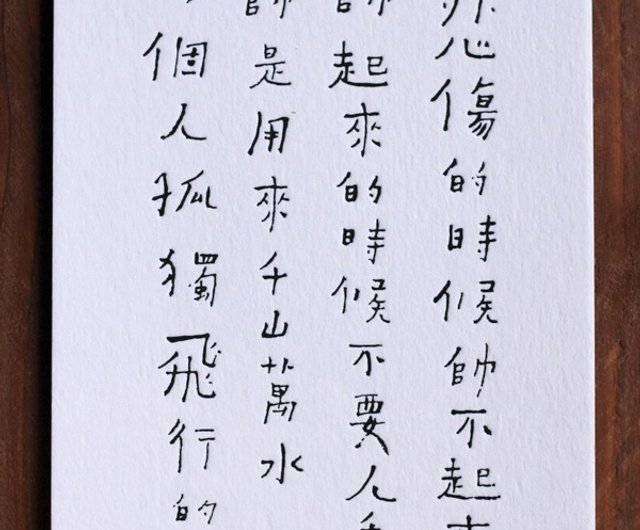 悲傷的時候帥不起來
帥起來的時候不要人
帥是用來千山萬水
個人孤獨飛行的